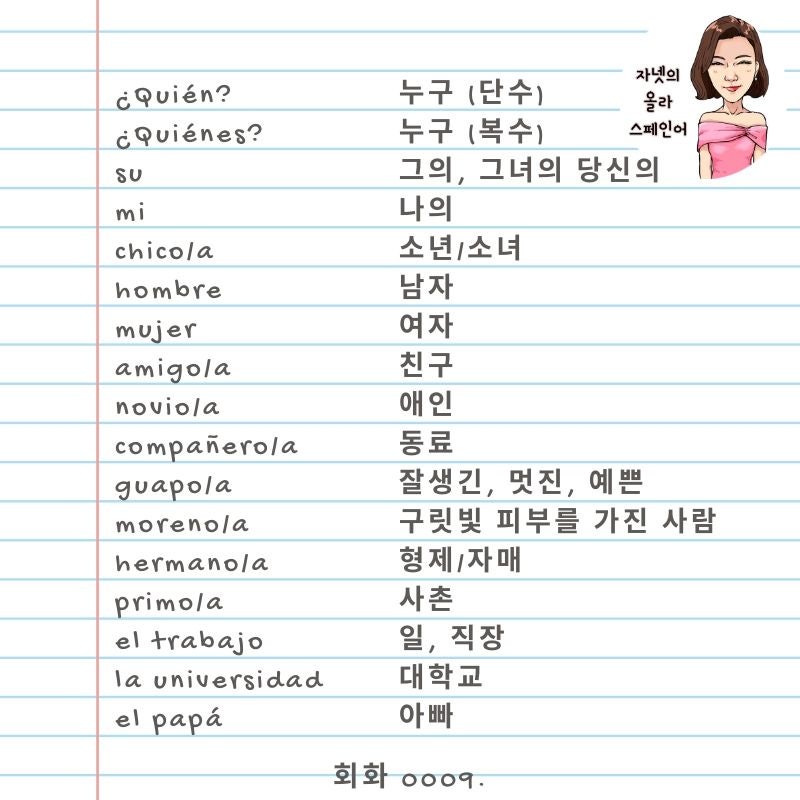 자넷의
올라
스페인어
¿Quién? 누구 (단수)
¿Quiénes? 누구 (복수)
su 그의, 그녀의 당신의
mi 나의
chico/a 소년/소녀
hombre 남자
mujer 여자
amigo/a 친구
novio/a 애인
compañero/a 동료
guapo/a 잘생긴, 멋진, 예쁜
moreno/a 구릿빛 피부를 가진 사람
hermano/a 형제/자매
primo/a 사촌
el trabajo 일, 직장
la universidad 대학교
el papá 아빠
회화 0009.